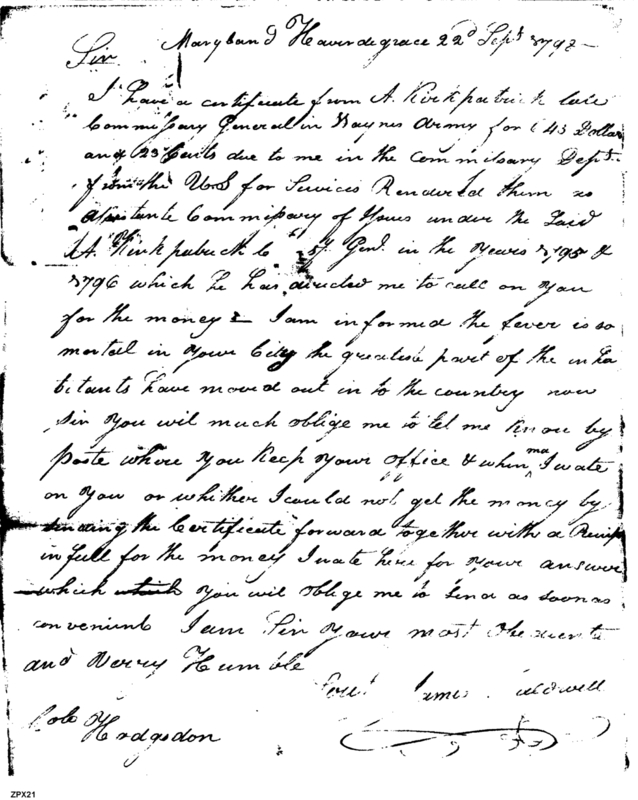 Maryland Haverdegrace 22d Sept 1798
Sir
I have a certificate from A. Kirkpatrick late
Commissary General in Waynes Army for 143 Dollars
and 23 Cents due to me in the Commissary Dept.
from the U.S for Services Rendered them as
Comissary of Yours under the Said
A. Kirkpatrick Genl. in the Years 1795 &
1796 which he has directed me to call on You
for the money I am informed the fever is so
mortal in Your City the greatest part of the inha
bitants have moved out in to the country now
Sir You wil much oblige me to let me know by
poste where You Keep Your office & when ma I wate
on You or whether I could not get the money by
sending the Certificate forward together with a Receip
in full for the money I wate here for Your answer
which which You wil oblige me to Send as soon as
convenient I am Sir Your most Obediente
and Verry Humble
Servt James Caldwell
Colo Hodgsdon
ZPX21